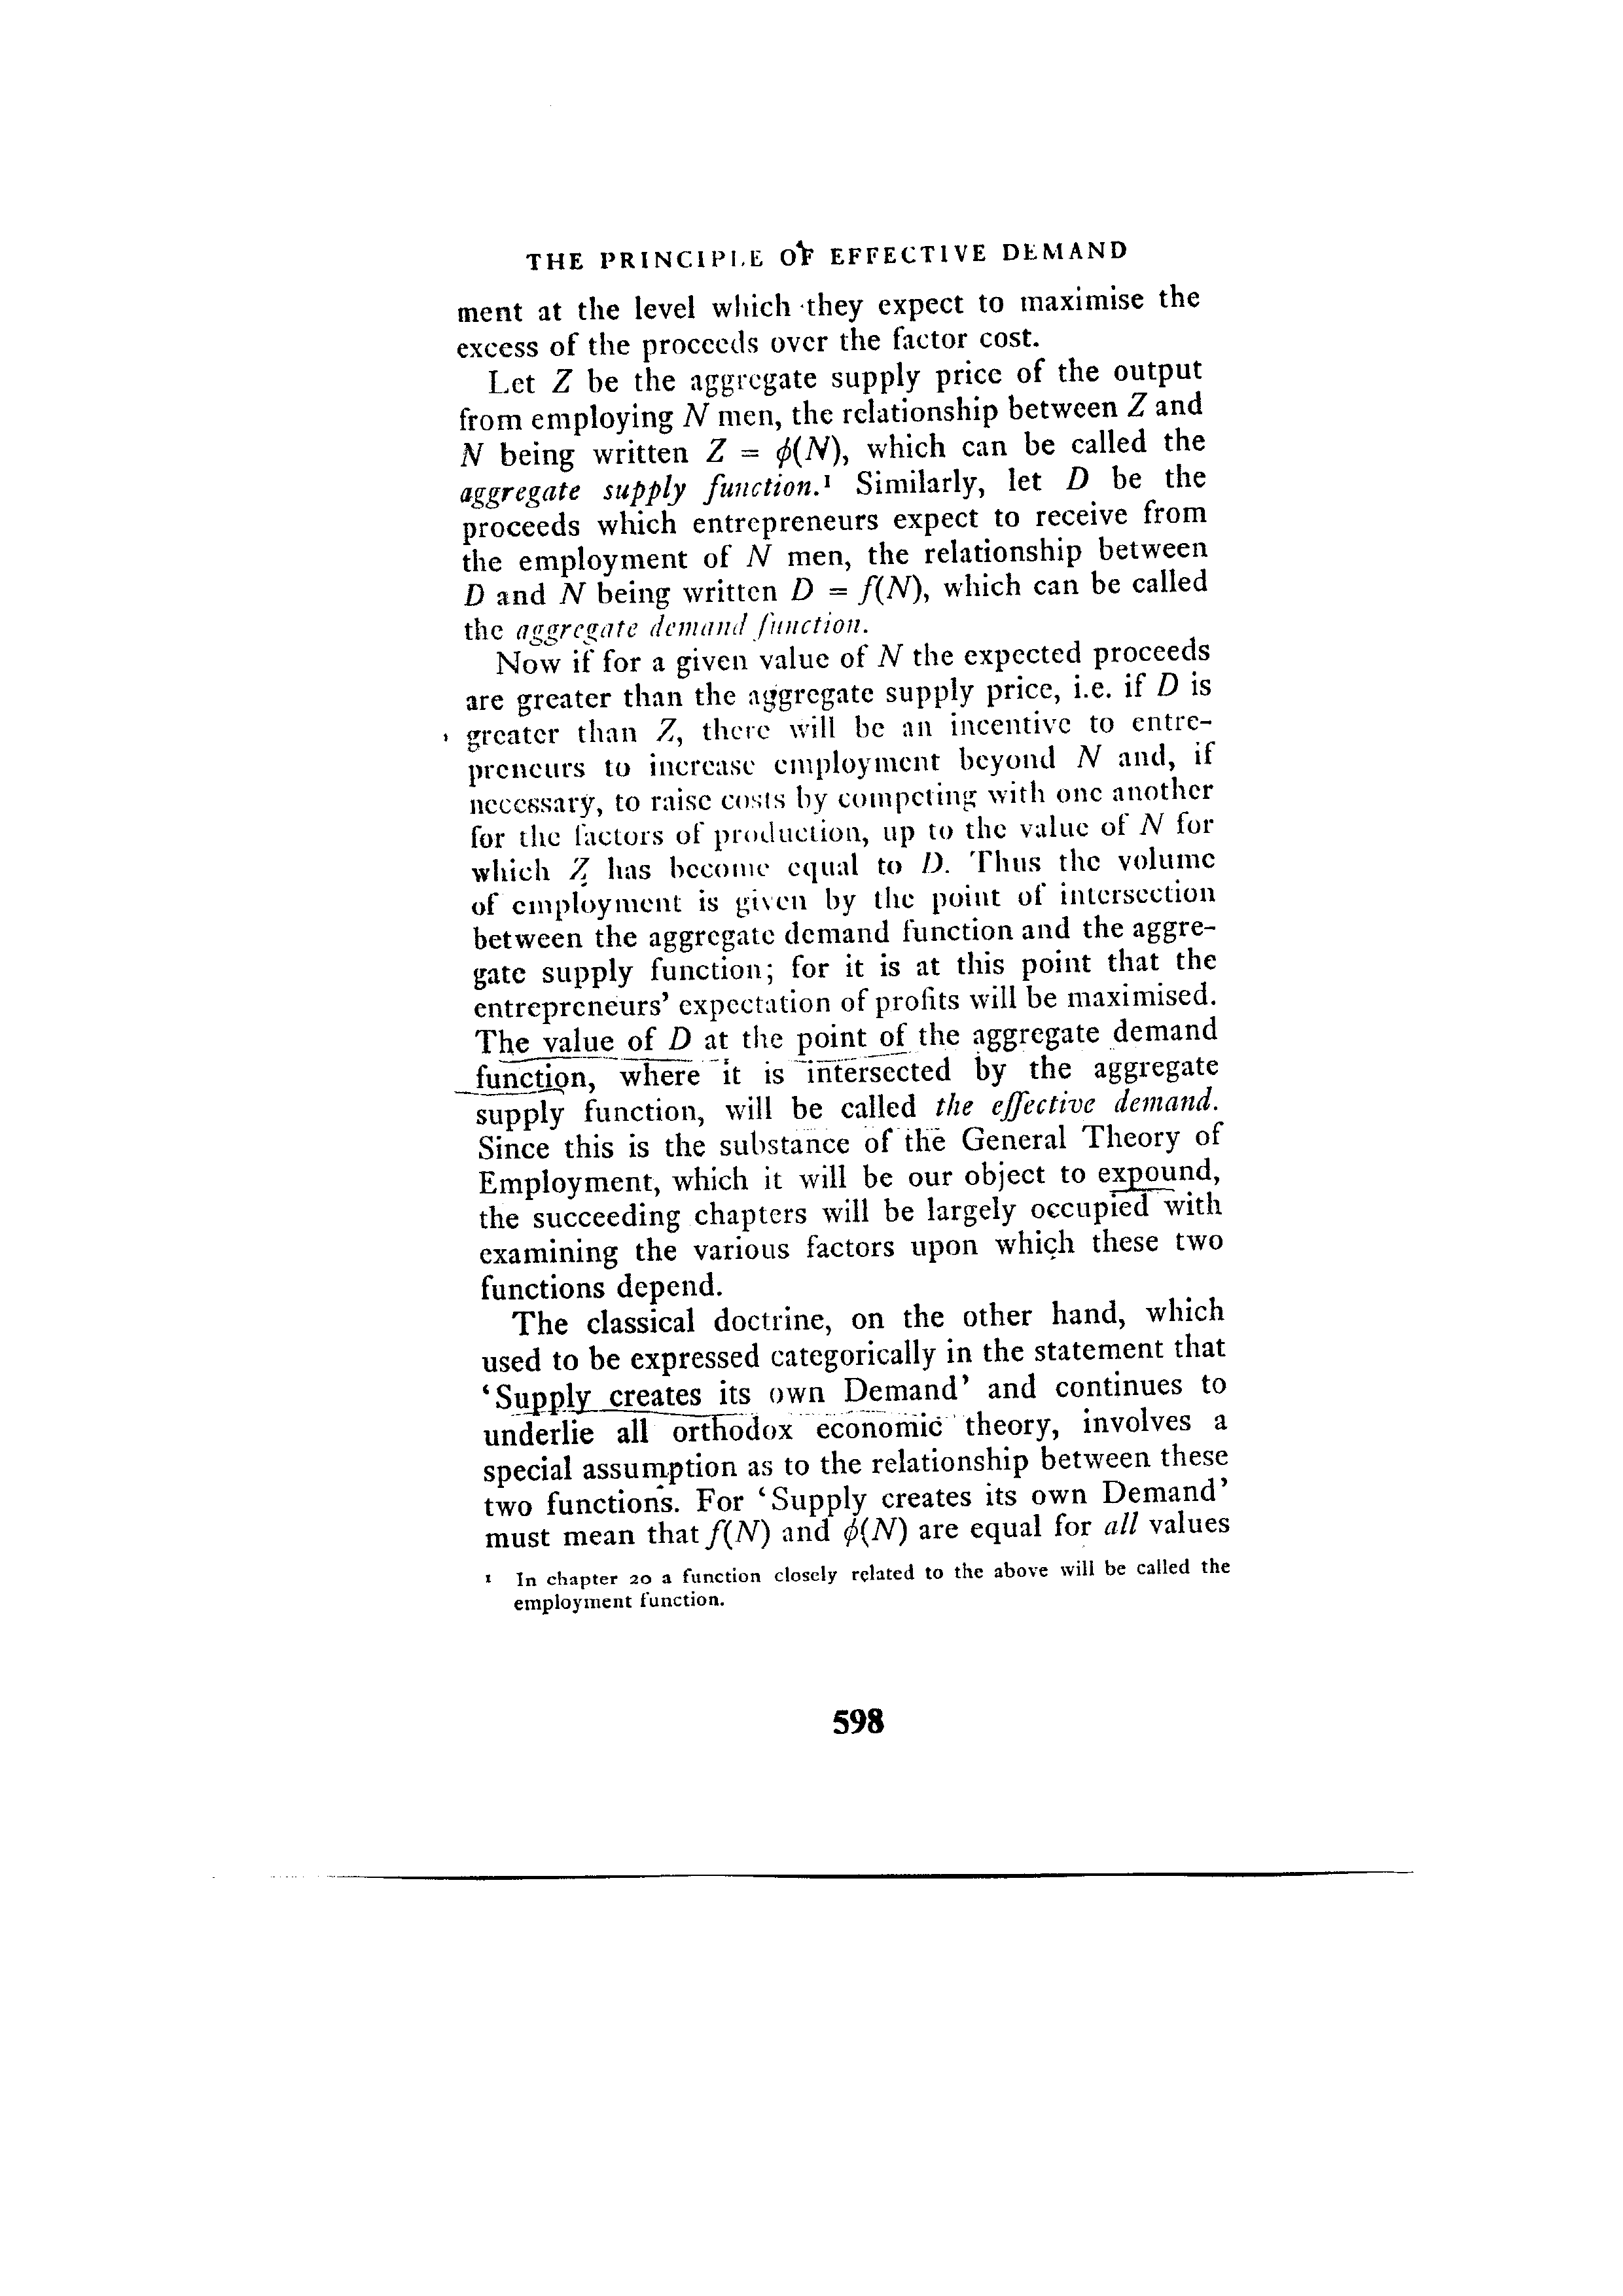 THE PRINCIPLE OF EFFECTIVE DEMAND
ment at the level which they expect to maximise the
excess of the proceeds over the factor cost.
Let Z be the aggregate supply price of the output
from employing N men, the relationship between Z and
N being written Z = ϕ(N), which can be called the
aggregate supply function.¹ Similarly, let D be the
proceeds which entrepreneurs expect to receive from
the employment of N men, the relationship between
D and N being written D = f(N), which can be called
the aggregate demand function.
Now if for a given value of N the expected proceeds
are greater than the aggregate supply price, i.e. if D is
greater than Z, there will be an incentive to entre-
preneurs to increase employment beyond N and, if
necessary, to raise costs by competing with one another
for the factors of production, up to the value of N for
which Z has become equal to D. Thus the volume
of employment is given by the point of intersection
between the aggregate demand function and the aggre-
gate supply function; for it is at this point that the
entrepreneurs’ expectation of profits will be maximised.
The value of D at the point of the aggregate demand
function, where it is intersected by the aggregate
supply function, will be called the effective demand.
Since this is the substance of the General Theory of
Employment, which it will be our object to expound,
the succeeding chapters will be largely occupied with
examining the various factors upon which these two
functions depend.
The classical doctrine, on the other hand, which
used to be expressed categorically in the statement that
‘Supply creates its own Demand’ and continues to
underlie all orthodox economic theory, involves a
special assumption as to the relationship between these
two functions. For ‘Supply creates its own Demand’
must mean that f(N) and ϕ(N) are equal for all values
¹ In chapter 20 a function closely related to the above will be called the
employment function.
598